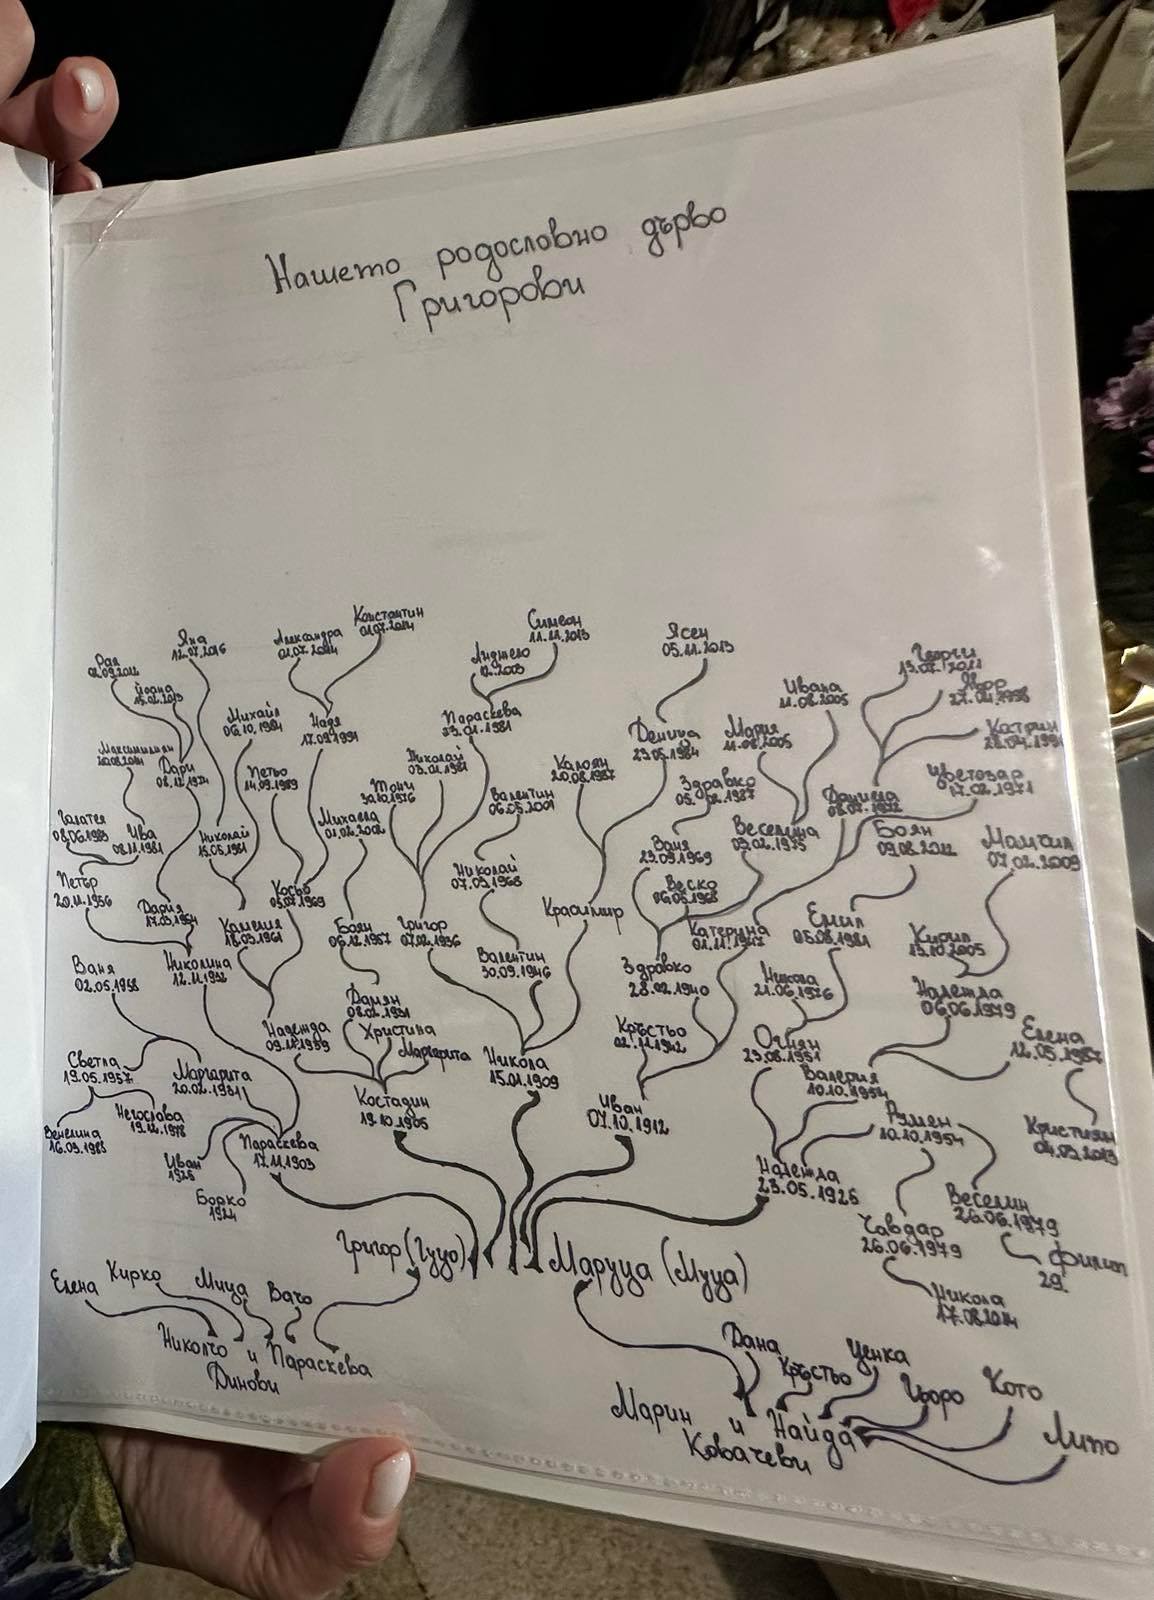 Нашето родословно дърво
Григорови
Константин
01.07.2014
Симеон
11.11.2013
Ясен
05.11.2013
Яна
12.07.2016
Александра
Анджело
12.2003
Георги
13.07.2011
Рая
Йоана
15.02.2013
Ивана
11.08.2005
Явор
Михаил
06.10.1984
Надя
17.09.1991
Параскева
23.01.1981
Деница
23.05.1984
Мария
11.08.2005
Катрин
Максимилиан
Дари
08.12.1974
Петьо
14.09.1989
Тони
30.10.1976
Николай
03.01.1981
Калоян
20.08.1987
Здравко
Цветозар
17.02.1971
Валентин
06.05.2001
Даниела
08.07.1972
Галатея
08.06.1983
Ива
08.11.1981
Николай
15.05.1981
Михаела
01.02.2002
Веселина
Боян
Момчил
07.02.2009
Ваня
23.09.1969
Николай
07.09.1968
Петър
20.11.1956
Косьо
05.07.1969
Веско
06.05.1968
Дария
17.03.1954
Камелия
18.03.1961
Боян
06.12.1957
Григор
07.02.1936
Красимир
Катерина
01.11.1947
Емил
05.08.1981
Кирил
13.10.2005
Ваня
02.05.1958
Николина
12.11.1932
Валентин
30.09.1946
Здравко
28.02.1940
Никола
21.06.1976
Надежда
06.06.1979
Дамян
08.02.1931
Надежда
09.11.1939
Христина
Маргарита
Никола
15.01.1909
Кръстьо
02.11.1942
Огнян
23.08.1951
Елена
12.05.1987
Светла
19.05.1957
Маргарита
20.02.1931
Валерия
10.10.1954
Костадин
19.10.1905
Иван
07.10.1912
Румен
10.10.1954
Негослава
19.12.1978
Венелина
16.03.1983
Параскева
17.11.1903
Кристиян
04.03.2013
Иван
1926
Надежда
23.05.1926
Борко
1924
Веселин
26.06.1979
Чавдар
26.06.1979
Филип
29.
Григор (Гуцо)
Маруца (Муца)
Елена
Кирко
Мица
Вачо
Никола
17.08.2014
Николчо и Параскева
Динови
Дана
Кръстьо
Ценка
Гьоро
Кото
Липо
Марин и Найда
Ковачеви